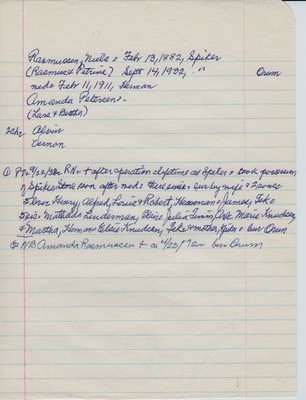 Rasmussen, Niels = Febr 13, 1882, Spiker
(Rasmus & Petrine) Sept 14, 1932, " Orum
md = Febr 11, 1911, Herman
Amanda Petersen =
(Lars & Bertha)
2 chr Alvin
Vernon
@ BT = 9/22/32 = RN = + after operation lifetime at Spiker = took possession
of Spiker store soon after md = there ever = sur by wife & 2 sons
5 bros Henry, Alfred, Louis & Robert, Herman = James, Teko =
5 sis = Mathilda Lenderman, Aline, Julia Timm, Marie Knudsen,
& Martha, Herman = Elsie Knudsen, Teko & mother, Spiker = bur Orum
@ NB Amanda Rasmussen + at 4/23/72 = bur Orum